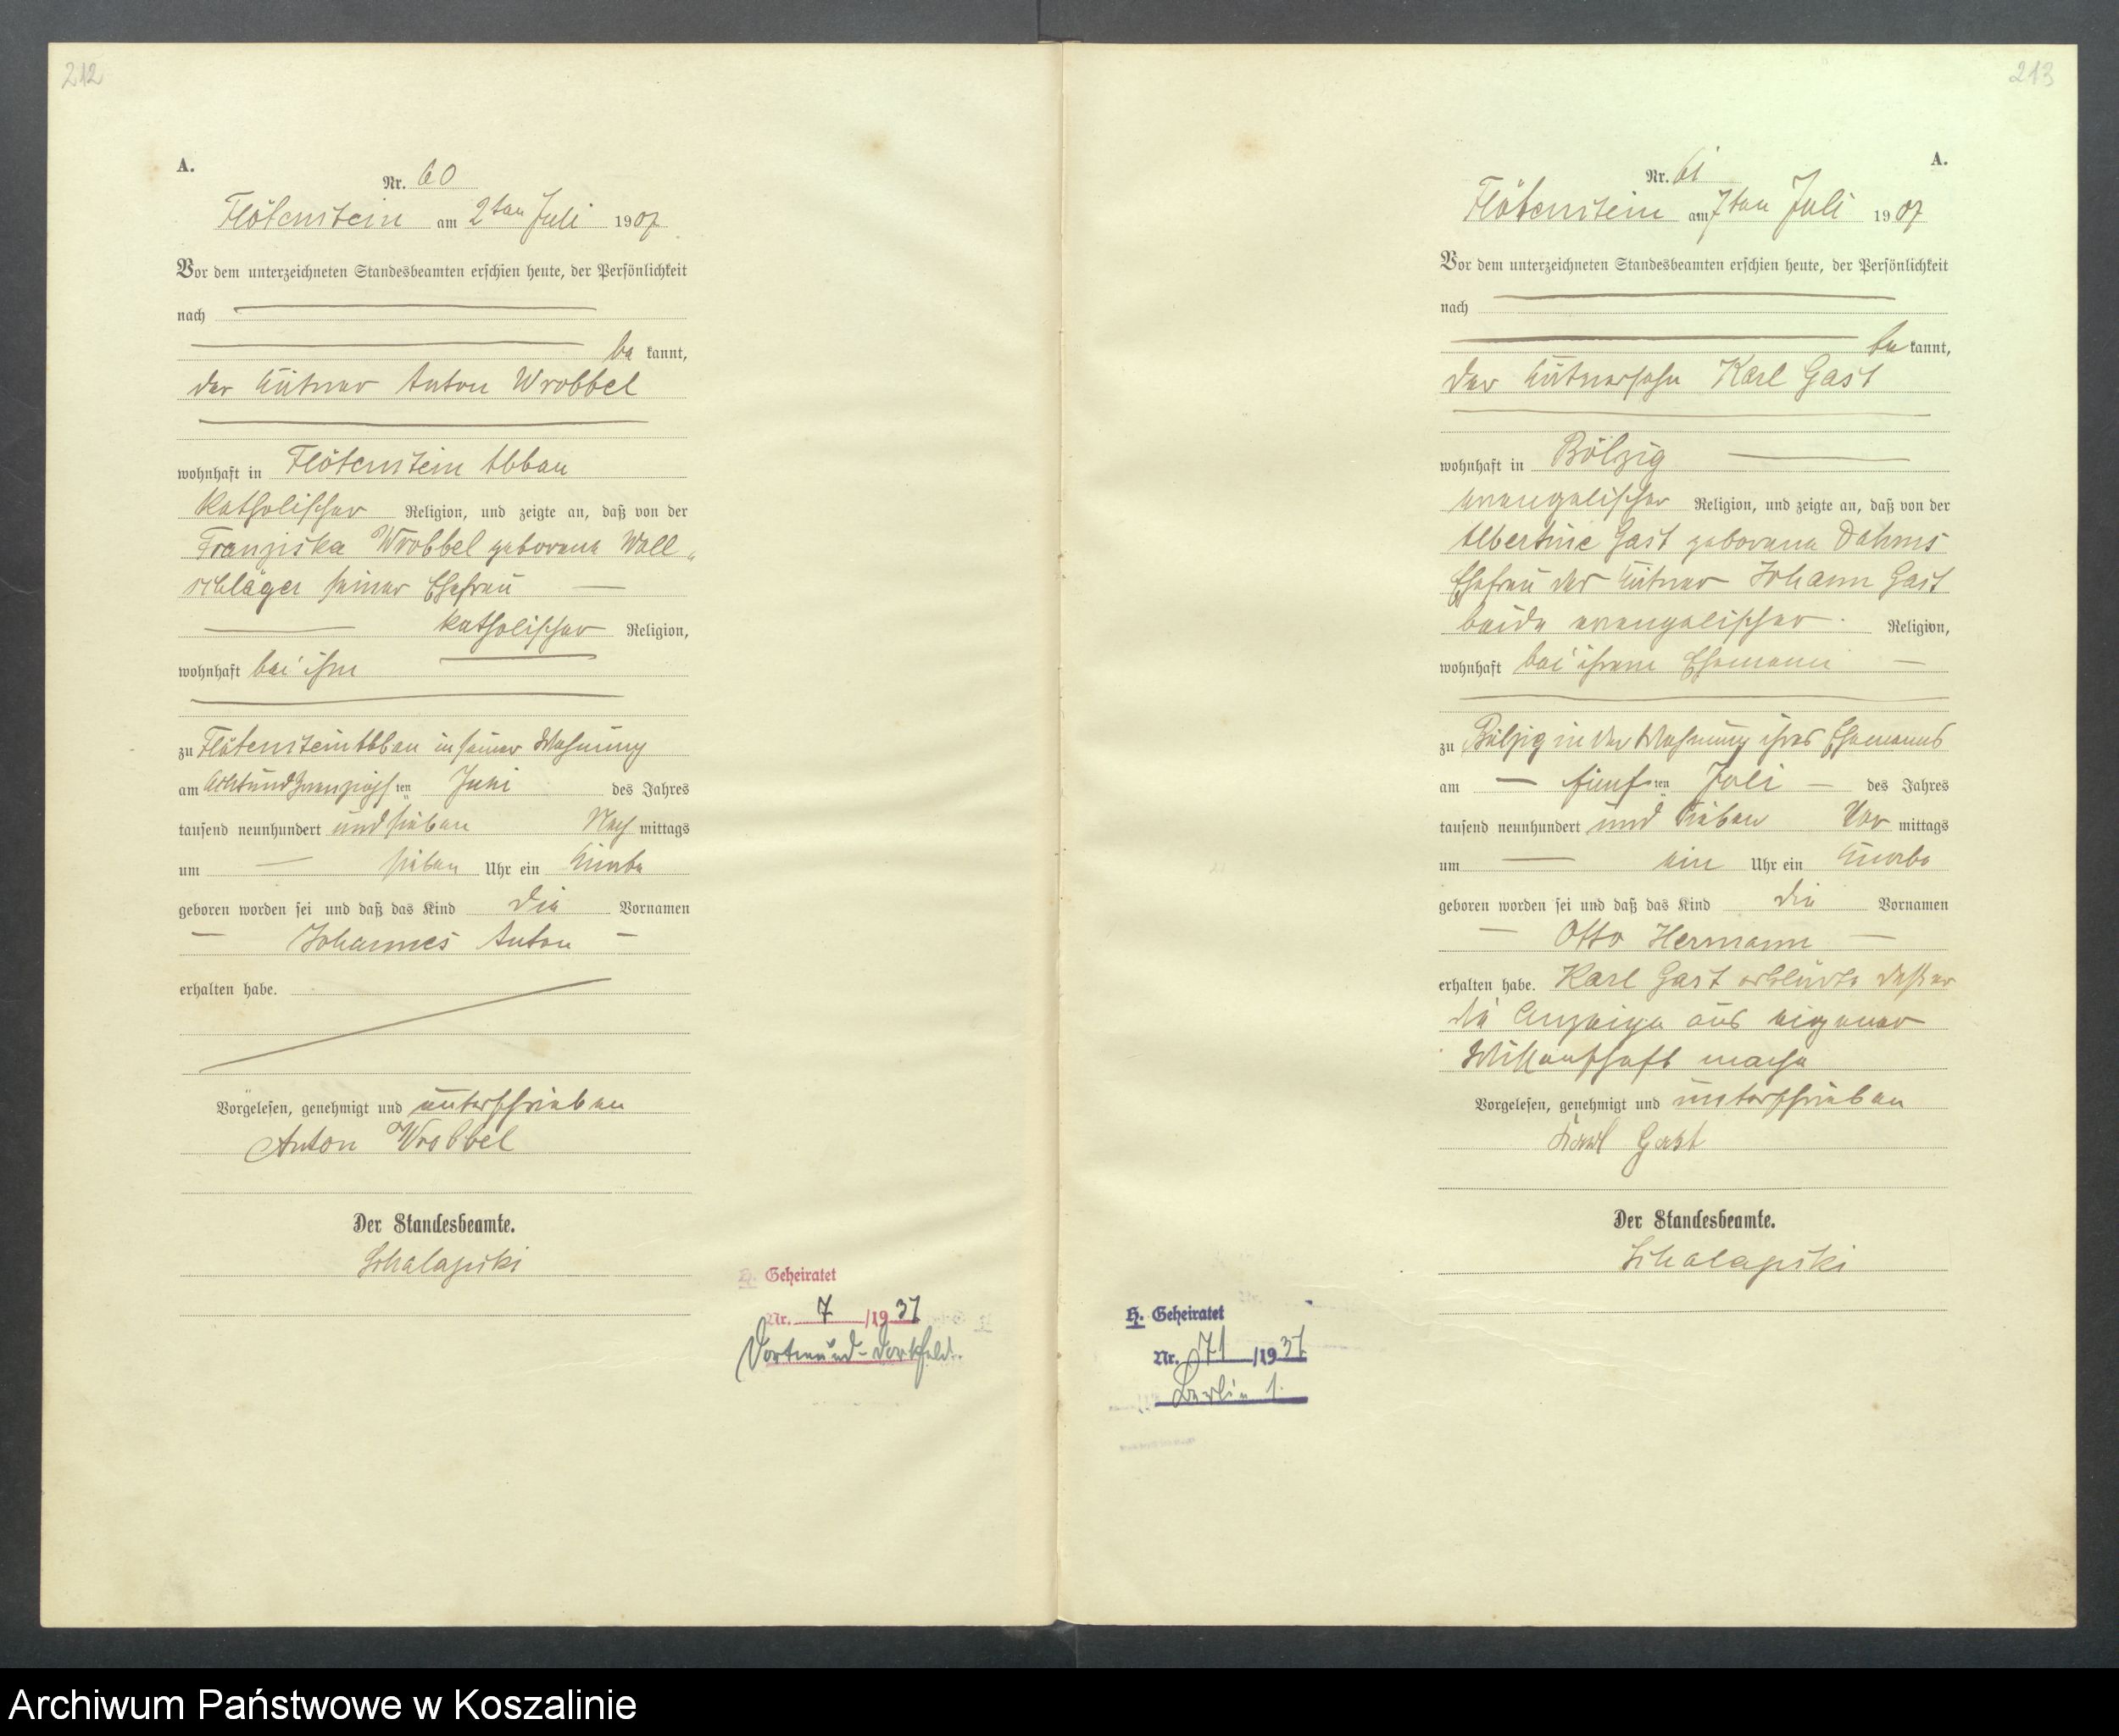 212
A.
Nr. 60
Flötenstein am 2ten Juli 1907
Vor dem unterzeichneten Standesbeamten erschien heute, der Persönlichkeit
nach
be kannt,
der Kätner Anton Wrobbel
wohnhaft in Flötenstein Abbau
katholischer Religion, und zeigte an, daß von der
Franziska Wrobbel geborene Woll„
schläger seiner Ehefrau
katholischer Religion,
wohnhaft bei ihm
zu Flötenstein Abbau in seiner Wohnung
am achtundzwanzigsten Juni des Jahres
tausend neunhundert und sieben Nach mittags
um sieben Uhr ein Knabe
geboren worden sei und daß das Kind die Vornamen
Johannes Anton
erhalten habe.
Vorgelesen, genehmigt und unterschrieben
Anton Wrobbel
Der Standesbeamte.
Schalapski
H. Geheiratet
Nr. 7 /1937
Dortmund-Dorstfeld.
213
A.
Nr. 61
Flötenstein am 7ten Juli 1907
Vor dem unterzeichneten Standesbeamten erschien heute, der Persönlichkeit
nach
be kannt,
der Kätnersohn Karl Gast
wohnhaft in Bölzig
evangelischer Religion, und zeigte an, daß von der
Albertine Gast geborene Dahms
Ehefrau des Kätner Johann Gast
beide evangelischer Religion,
wohnhaft bei ihrem Ehemann
zu Bölzig in der Wohnung ihres Ehemanns
am fünften Juli des Jahres
tausend neunhundert und sieben Vor mittags
um ein Uhr ein Knabe
geboren worden sei und daß das Kind die Vornamen
Otto Hermann
erhalten habe. Karl Gast erklärte daß er
die Anzeige aus eigener
Wissenschaft mache
Vorgelesen, genehmigt und unterschrieben
Karl Gast
Der Standesbeamte.
Schalapski
H. Geheiratet
Nr. 71 /1937
Berlin 1.
Archiwum Państwowe w Koszalinie